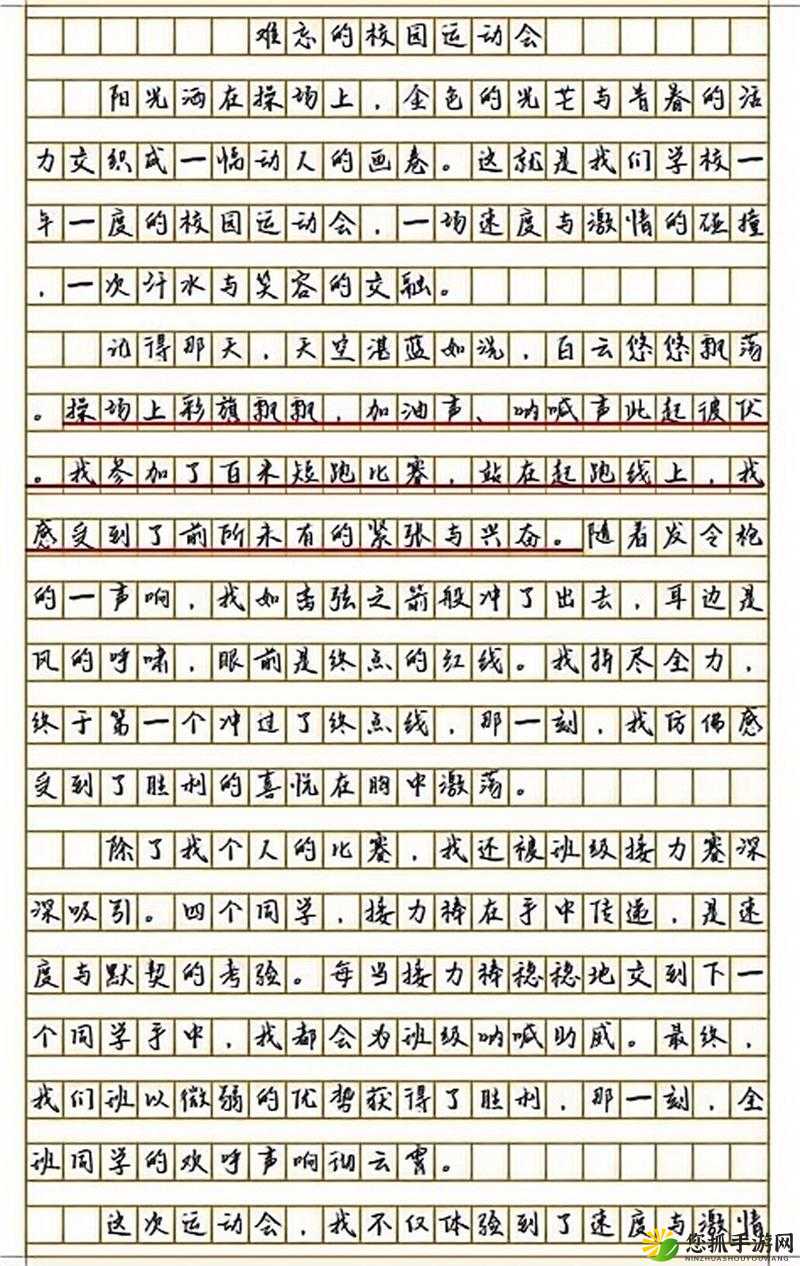 难忘的校园运动会
阳光洒在操场上，金色的光芒与青春的活
力交织成一幅动人的画卷。这就是我们学校一
年一度的校园运动会，一场速度与激情的碰撞
，一次汗水与笑容的交融。
记得那天，天空湛蓝如洗，白云悠悠飘荡
。操场上彩旗飘飘，加油声、呐喊声此起彼伏
。我参加了百米短跑比赛，站在起跑线上，我
感受到了前所未有的紧张与兴奋。随着发令枪
的一声响，我如离弦之箭般冲了出去，耳边是
风的呼啸，眼前是终点的红线。我拼尽全力，
终于第一个冲过了终点线，那一刻，我仿佛感
受到了胜利的喜悦在胸中激荡。
除了我个人的比赛，我还被班级接力赛深
深吸引。四个同学，接力棒在手中传递，是速
度与默契的考验。每当接力棒稳稳地交到下一
个同学手中，我都会为班级呐喊助威。最终，
我们班以微弱的优势获得了胜利，那一刻，全
班同学的欢呼声响彻云霄。
这次运动会，我不仅体验到了速度与激情
您抓手游网
NINZHUASHOUYOUWANG